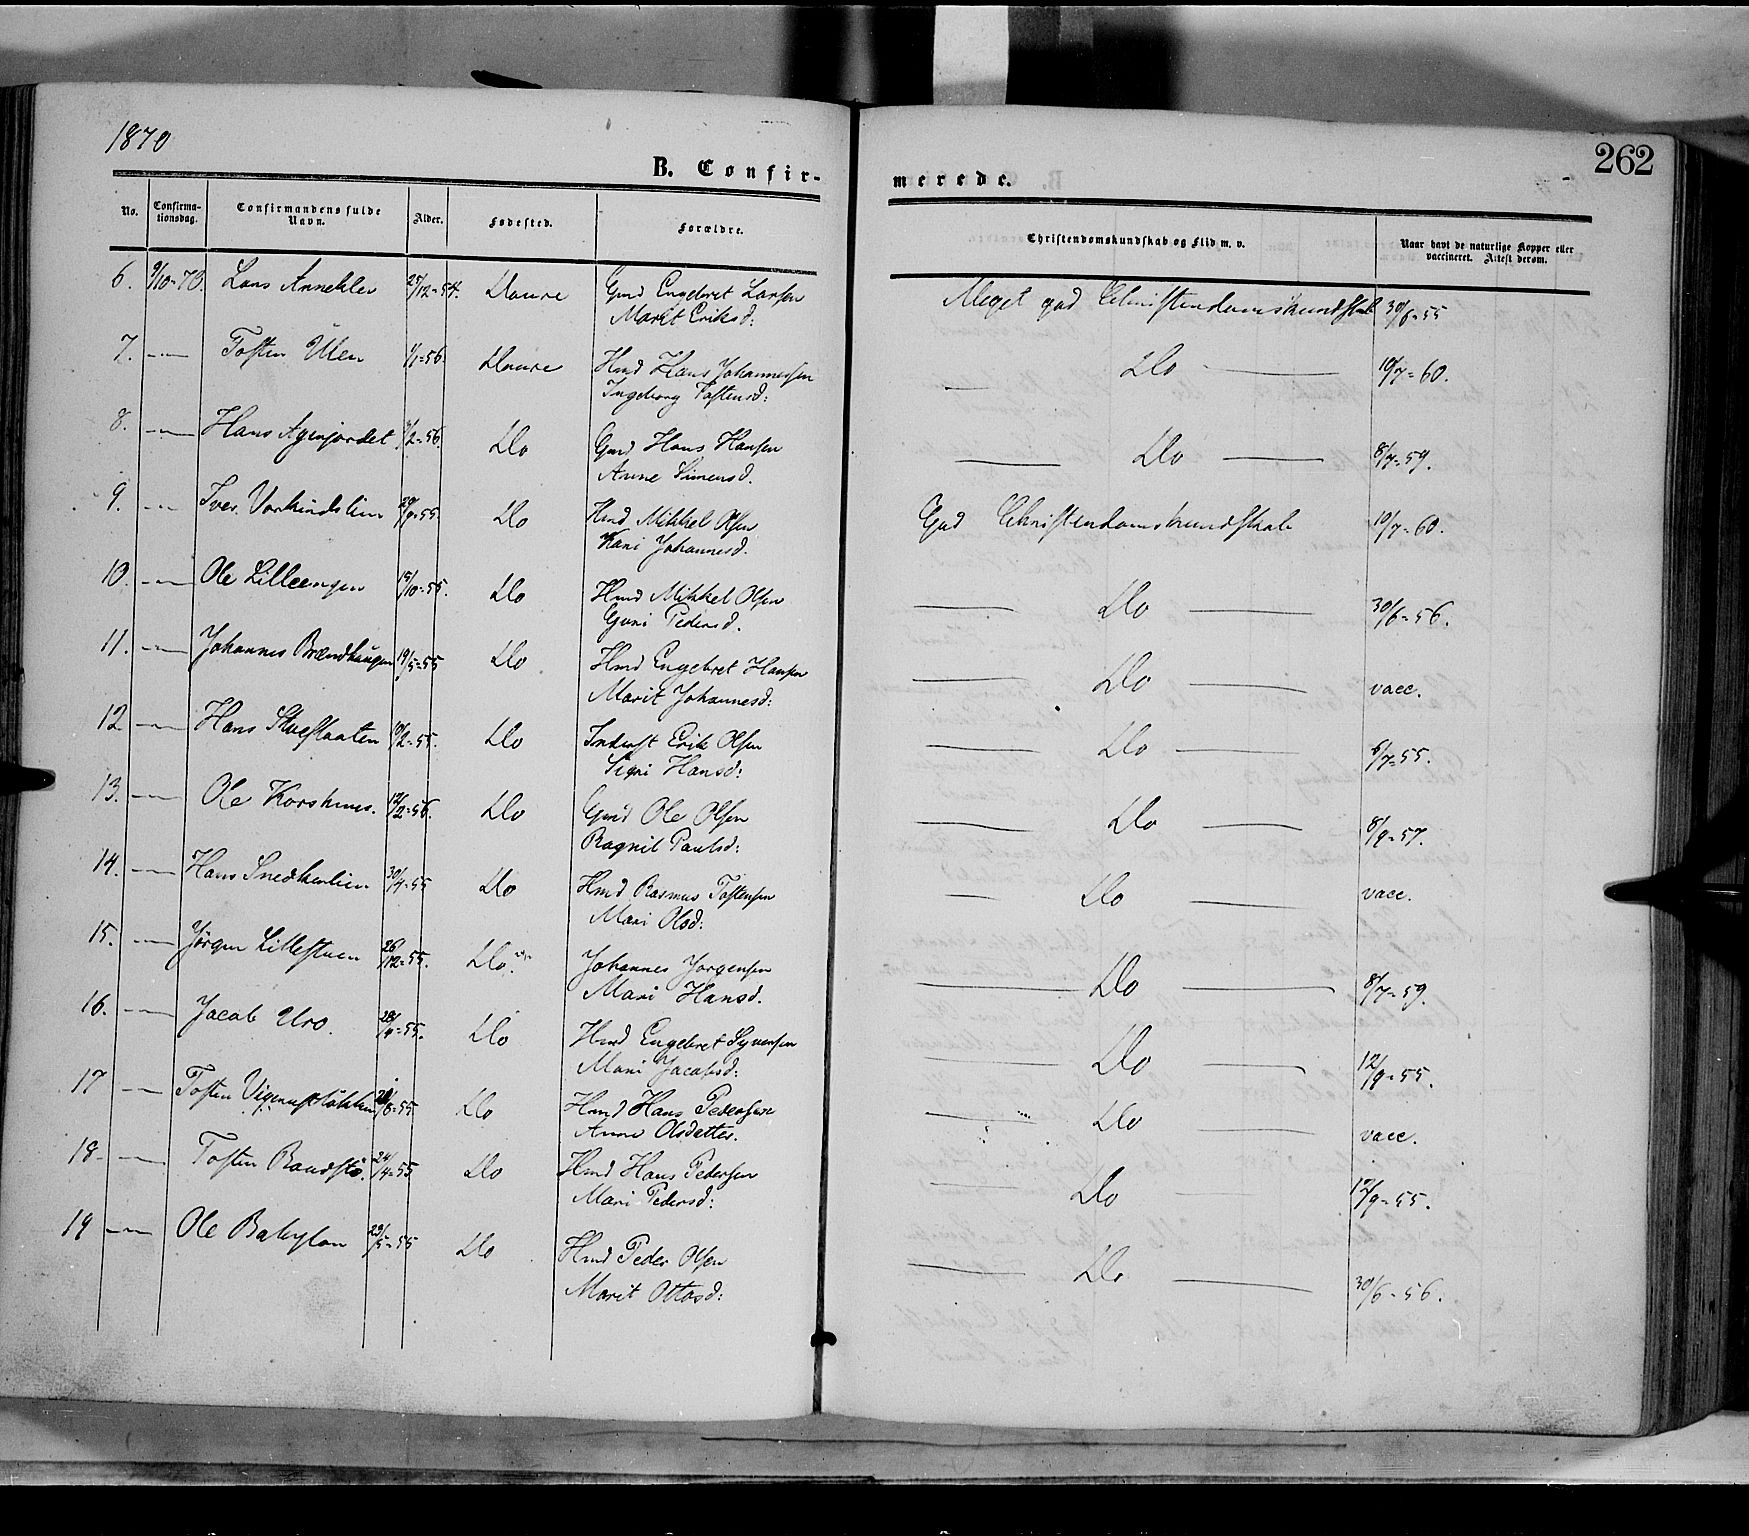 1870
262
B. Confir-
merede.
No.
Confirma-
tionsdag.
Confirmandens fulde
Navn.
Alder.
Fødested.
Forældre.
Christendomskundskab og Flid m. v.
Naar havt de naturlige Kopper eller
vaccineret. Attest derom.
6. 9/10-70. Lars 25/12=54. Gmd Engebret Larsen Meget god Christendomskundskab 30/6=55
Marit Eriksd:
7. -"- Tosten Ulen 1/1=56. Hmd Hans Johannessen — Do — 19/7=60.
Ingeborg Tostensd:
8. -"- Hans /2=56. Do Gmd Hans Hansen — Do — 8/7=59.
Anne Simensd.
9. -"- Iver /9=55. Do Hmd Mikkel Olsen God Christendomskundskab 19/7=60.
Kari Johannesd.
10. -"- Ole Lilleengen 15/10=55. Do Hmd Mikkel Olsen — Do — 30/6=56.
Guri Pedersd.
11. -"- Johannes Brændhaugen 19/5=55 Do Hmd Engebret Hansen — Do — vacc.
Marit Johannesd:
12 -"- Hans /2=55. Do Inderst Erik Olsen — Do — 6/7=55.
Sigri Hansd:
13. -"- Ole 12/2=56. Do Gmd Ole Olsen — Do — 8/9=57.
Ragnil Paulsd:
14. -"- Hans Snedkerlien 30/4=55 Do Hmd Rasmus Tostensen — Do — vacc.
Mari Olsd:
15. -"- Jørgen Lillestuen 26/12=55. Do. Johannes Jørgensen — Do — 8/7=59.
Mari Hansd.
16. -"- Jacob Uro. 28/ =55. Do Hmd Engebret Syversen — Do — 12/9=55.
Mari Jacobsd:
17 -"- Tosten /8=55. Do Hmd Hans Pedersen — Do — vacc.
Anne Olsdatter.
18- -"- Tosten 24/4=55 Do Hmd Hans Pedersen — Do — 12/9=55.
Mari Pedersd:
19 -"- Ole Babylon 29/5=55 Do Hmd Peder Olsen — Do — 30/6=56.
Marit Ottosd: